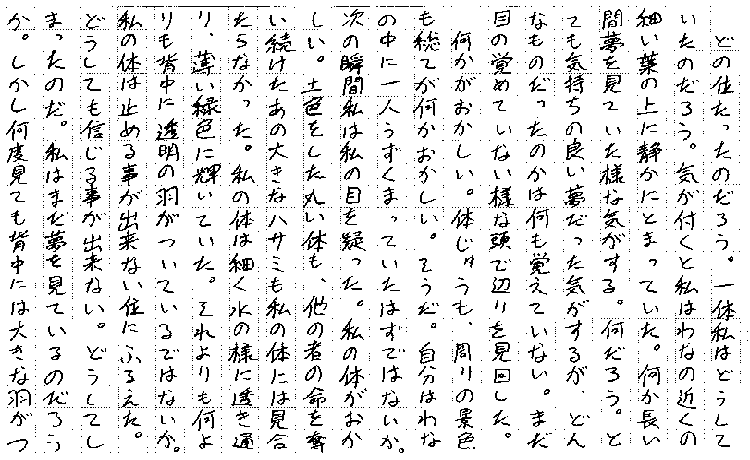 どの位たったのだろう。一体私はどうして
いたのだろう。気が付くと私はわなの近くの
細い葉の上に静かにとまっていた。何か長い
間夢を見ていた様な気がする。何だろう。と
ても気持ちの良い夢だった気がするが、どん
なものだったのかは何も覚えていない。まだ
目の覚めていない様な頭で辺りを見回した。
何かがおかしい。体じゅうも、周りの景色
も総てが何かおかしい。そうだ。自分はわな
の中に一人うずくまっていたはずではないか。
次の瞬間私は私の目を疑った。私の体がおか
しい。土色をした丸い体も、他の者の命を奪
い続けたあの大きなハサミも私の体には見合
たらなかった。私の体は細く水の様に透き通
り、薄い緑色に輝いていた。それよりも何よ
りも背中に透明の羽がついているではないか。
私の体は止める事が出来ない位にふるえた。
どうしても信じる事が出来ない。どうしてし
まったのだ。私はまだ夢を見ているのだろう
か。しかし何度見ても背中には大きな羽がつ